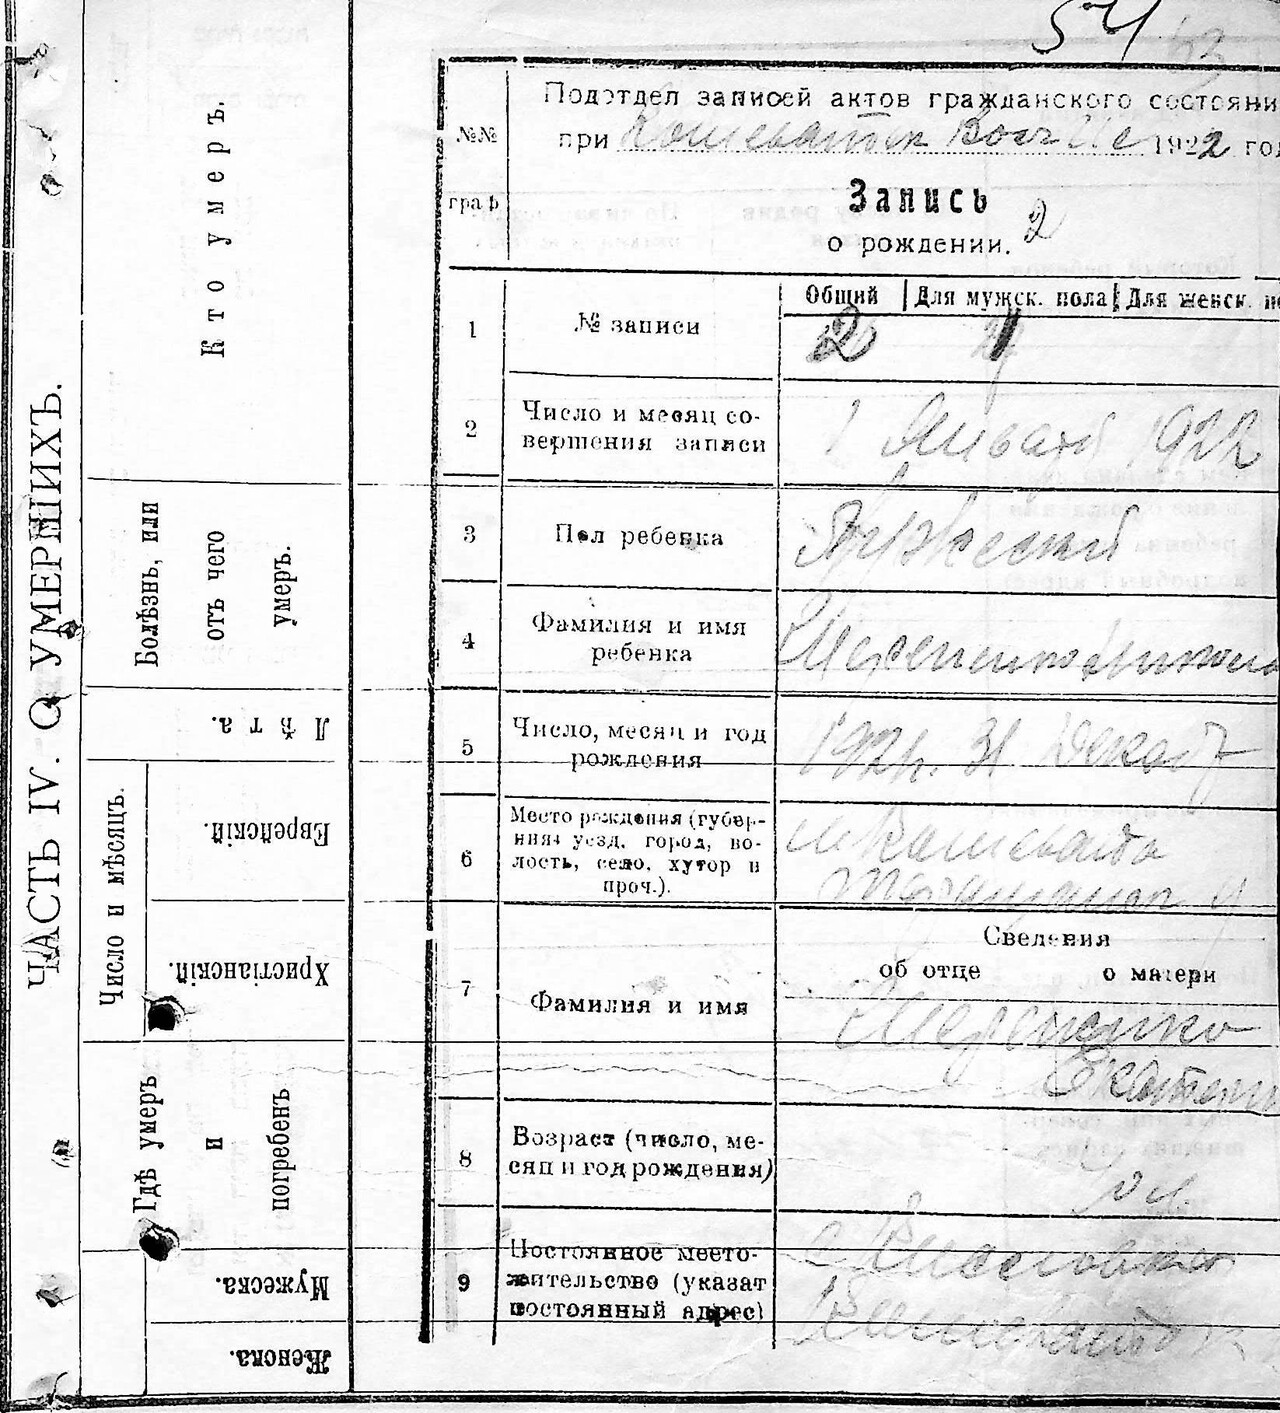 54
ЧАСТЬ IV. О УМЕРШИХЪ.
Кто умеръ.
Болѣзнь, или
отъ чего
умеръ.
Лѣта.
Число и мѣсяцъ.
Еврейскій.
Христіанскій.
Гдѣ умеръ
и
погребенъ
Мужеска.
Женска.
№№
граф
Подотдел записей актов гражданского состояни
при 1922 год
Запись
о рождении. 2
1
№ записи
Общий Для мужск. пола Для женск. по
2
2
Число и месяц со-
вершения записи
1 Января 1922
3
Пол ребенка
Мужеский
4
Фамилия и имя
ребенка
5
Число, месяц и год
рождения
1921. 31 Декаб
6
Место рождения (губер-
ния, уезд, город, во-
лость, село, хутор и
проч.).
м Кошевата
7
Фамилия и имя
Сведения
об отце о матери
Екатери
8
Возраст (число, ме-
сяц и год рождения)
9
Постоянное место-
жительство (указат
постоянный адрес)